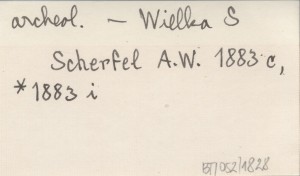 archeol. – Wielka S
Scherfel A.W. 1883 c,
* 1883 i
BT/052/1828